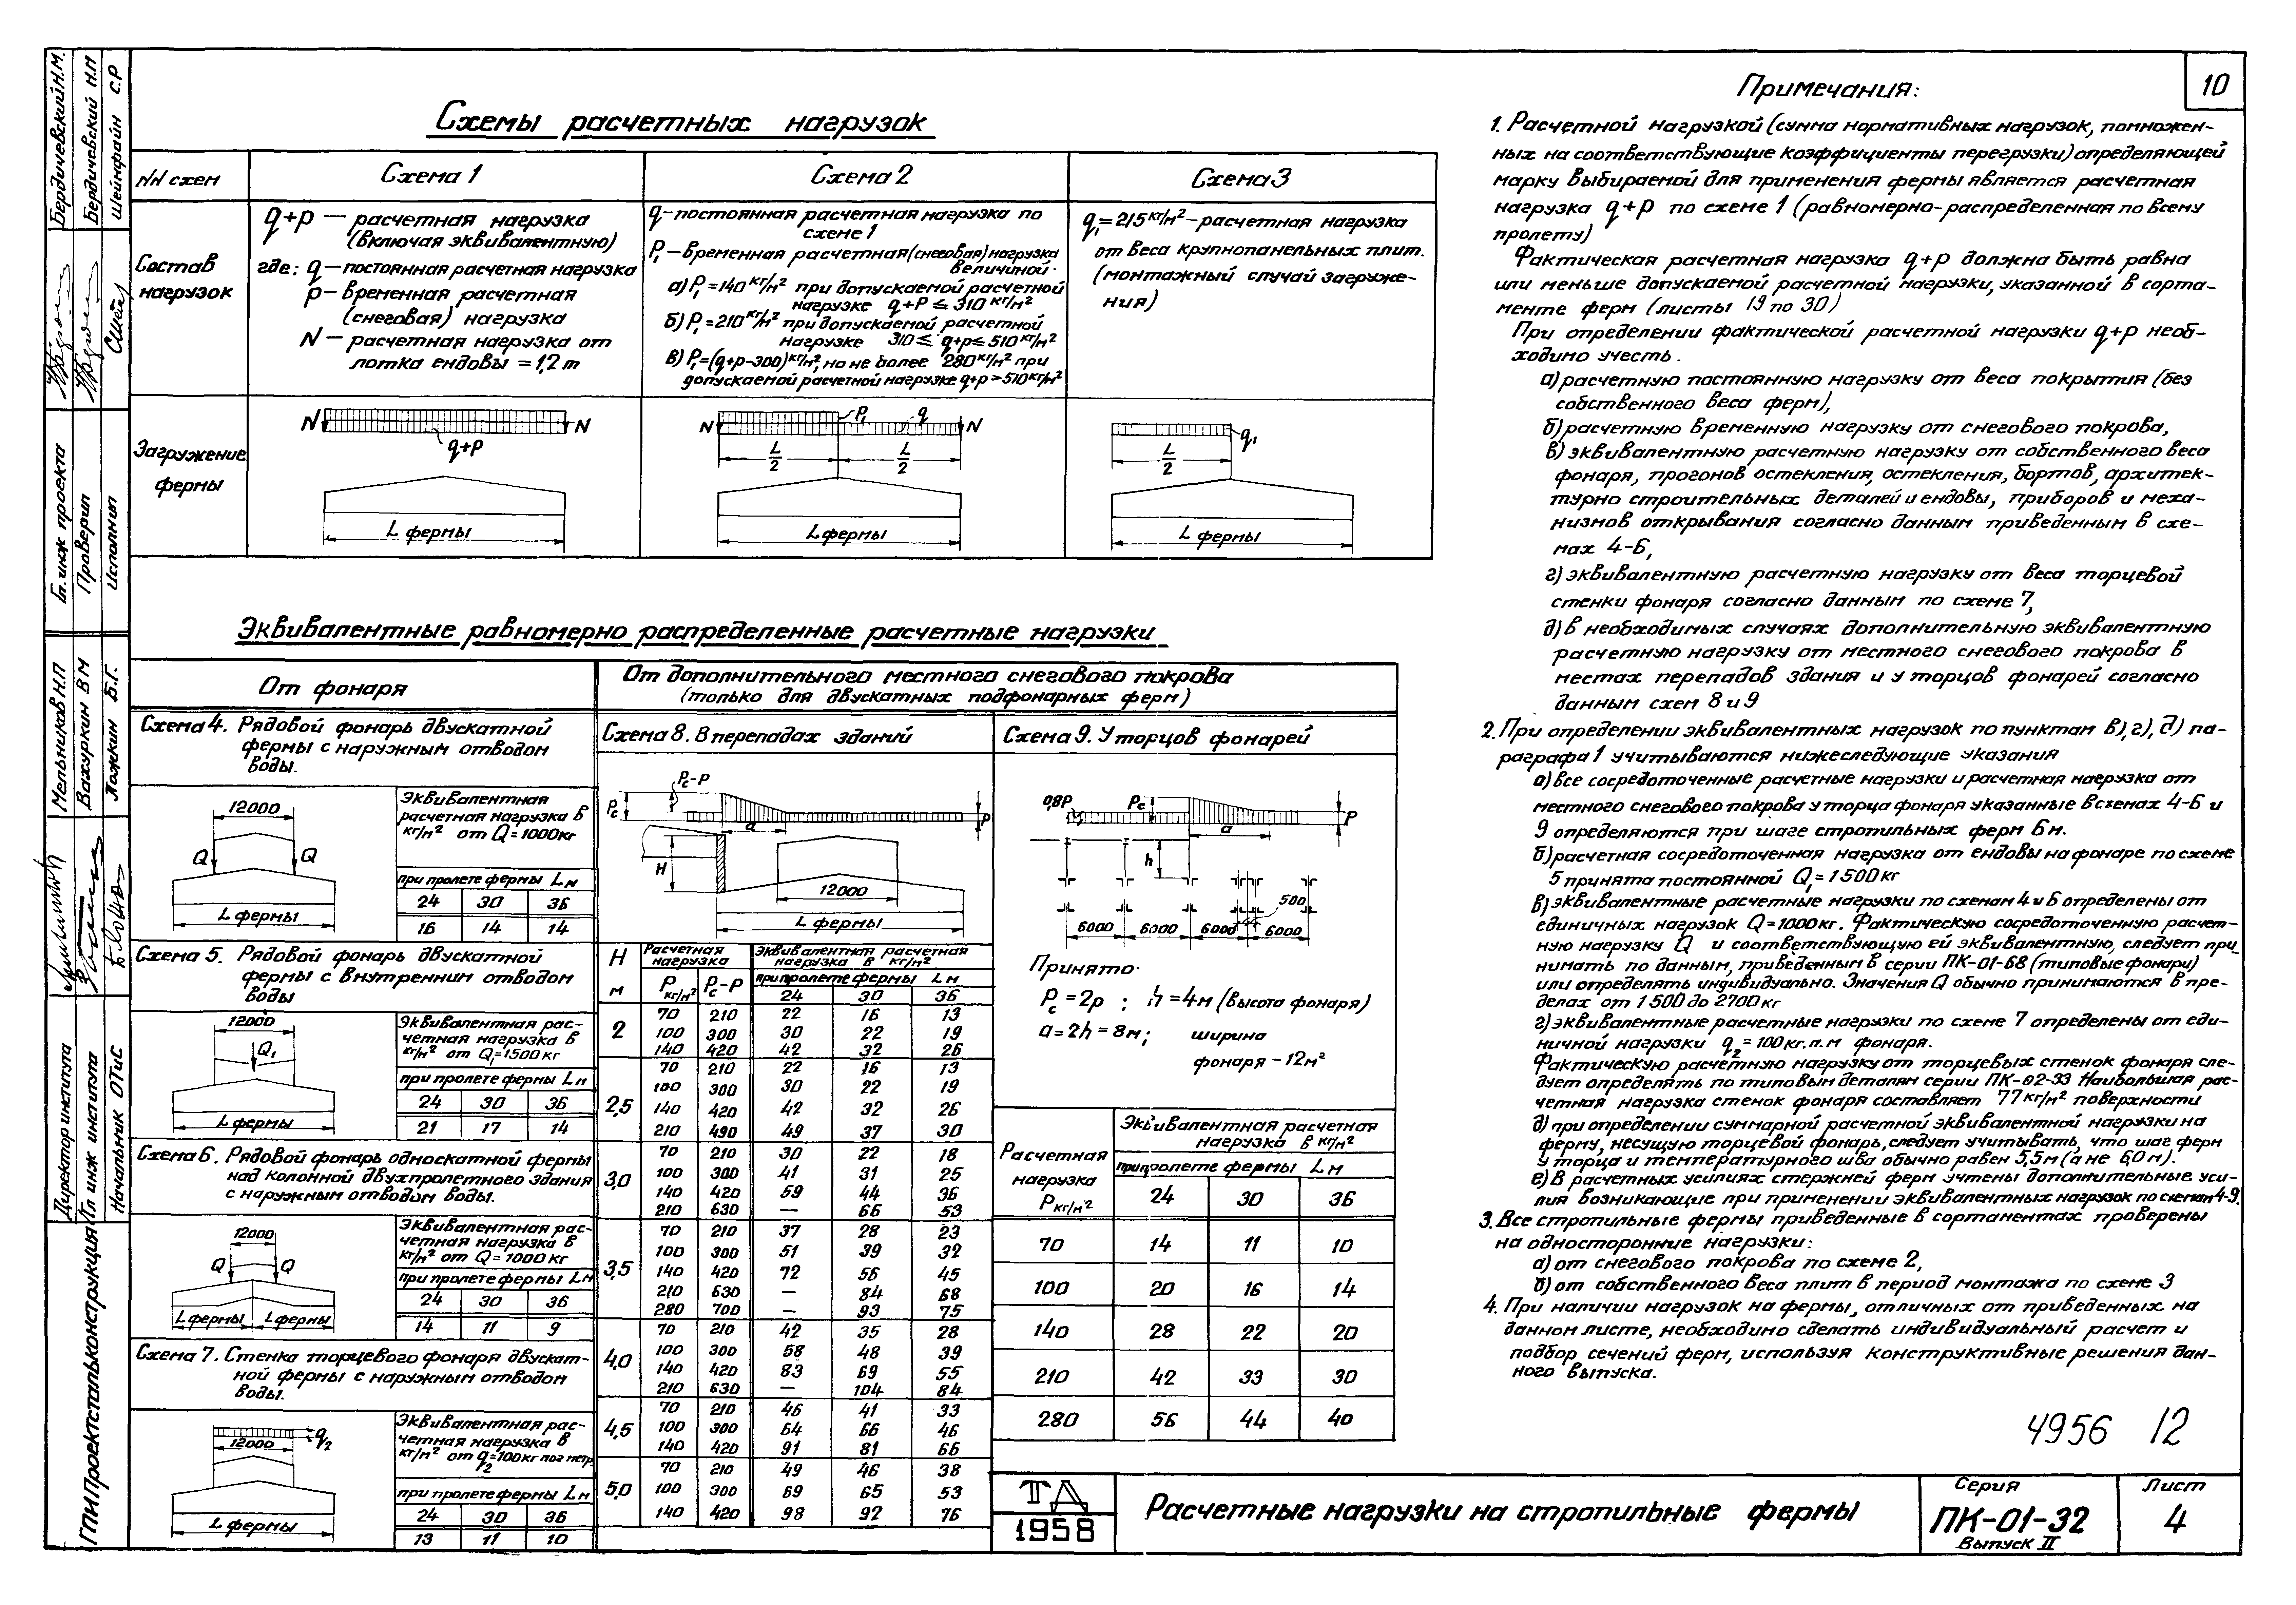 10
Схемы расчетных нагрузок
NN схем
Схема 1
Схема 2
Схема 3
Состав
нагрузок
q+p — расчетная нагрузка
(включая эквивалентную)
где: q — постоянная расчетная нагрузка
p — временная расчетная
(снеговая) нагрузка
N — расчетная нагрузка от
лотка ендовы = 1,2 т
q - постоянная расчетная нагрузка по
схеме 1
P₁ — временная расчетная (снеговая) нагрузка
величиной:
а) P₁ = 140 кг/м² при допускаемой расчетной
нагрузке q+p ≤ 310 кг/м²
б) P₁ = 210 кг/м² при допускаемой расчетной
нагрузке 310 ≤ q+p ≤ 510 кг/м²
в) P₁ = (q+p-300) кг/м², но не более 280 кг/м² при
допускаемой расчетной нагрузке q+p > 510 кг/м²
q₁ = 215 кг/м² — расчетная нагрузка
от веса крупнопанельных плит.
(монтажный случай загруже-
ния)
Загружение
фермы
N N
q+p
L фермы
N P₁ q N
L/2 L/2
L фермы
q₁
L/2
L фермы
Эквивалентные равномерно распределенные расчетные нагрузки
От фонаря
От дополнительного местного снегового покрова
(только для двускатных подфонарных ферм)
Схема 4. Рядовой фонарь двускатной
фермы с наружным отводом
воды.
12000
Q Q
L фермы
Эквивалентная
расчетная нагрузка в
кг/м² от Q = 1000 кг
при пролете фермы L м
24 30 36
16 14 14
Схема 5. Рядовой фонарь двускатной
фермы с внутренним отводом
воды
12000
Q₁
L фермы
Эквивалентная рас-
четная нагрузка в
кг/м² от Q₁ = 1500 кг
при пролете фермы L м
24 30 36
21 17 14
Схема 6. Рядовой фонарь односкатной фермы
над колонной двухпролетного здания
с наружным отводом воды.
12000
Q Q
L фермы L фермы
Эквивалентная рас-
четная нагрузка в
кг/м² от Q = 1000 кг
при пролете фермы L м
24 30 36
14 11 9
Схема 7. Стенка торцевого фонаря двускат-
ной фермы с наружным отводом
воды.
q₂
12000
L фермы
Эквивалентная рас-
четная нагрузка в
кг/м² от q₂ = 100 кг пог метр
при пролете фермы L м
24 30 36
13 11 10
Схема 8. В перепадах зданий
Pс-P
Pс
a
P
H
12000
L фермы
H
м
Расчетная
нагрузка
P кг/м² Pс-P
Эквивалентная расчетная
нагрузка в кг/м²
при пролете фермы L м
24 30 36
2
70 210 22 16 13
100 300 30 22 19
140 420 42 32 26
2,5
70 210 22 16 13
100 300 30 22 19
140 420 42 32 26
210 490 49 37 30
3,0
70 210 30 22 18
100 300 41 31 25
140 420 59 44 36
210 630 — 66 53
3,5
70 210 37 28 23
100 300 51 39 32
140 420 72 56 45
210 630 — 84 68
280 700 — 93 75
4,0
70 210 42 35 28
100 300 58 48 39
140 420 83 69 55
210 630 — 104 84
4,5
70 210 46 41 33
100 300 64 66 46
140 420 91 81 66
5,0
70 210 49 46 38
100 300 69 65 53
140 420 98 92 76
Схема 9. У торцов фонарей
0,8P Pс P
a
h
500
6000 6000 6000 6000
Принято:
Pс = 2p ; h = 4 м (высота фонаря)
a = 2h = 8 м; ширина
фонаря - 12 м²
Расчетная
нагрузка
P кг/м²
Эквивалентная расчетная
нагрузка в кг/м²
при пролете фермы L м
24 30 36
70 14 11 10
100 20 16 14
140 28 22 20
210 42 33 30
280 56 44 40
Примечания:
1. Расчетной нагрузкой (сумма нормативных нагрузок, помножен-
ных на соответствующие коэффициенты перегрузки) определяющей
марку выбираемой для применения фермы является расчетная
нагрузка q+p по схеме 1 (равномерно-распределенная по всему
пролету)
Фактическая расчетная нагрузка q+p должна быть равна
или меньше допускаемой расчетной нагрузки, указанной в сорта-
менте ферм (листы 19 по 30)
При определении фактической расчетной нагрузки q+p необ-
ходимо учесть.
а) расчетную постоянную нагрузку от веса покрытия (без
собственного веса ферм),
б) расчетную временную нагрузку от снегового покрова,
в) эквивалентную расчетную нагрузку от собственного веса
фонаря, прогонов остекления, остекления, бортов, архитек-
турно строительных деталей и ендовы, приборов и меха-
низмов открывания согласно данным приведенным в схе-
мах 4-6,
г) эквивалентную расчетную нагрузку от веса торцевой
стенки фонаря согласно данным по схеме 7,
д) в необходимых случаях дополнительную эквивалентную
расчетную нагрузку от местного снегового покрова в
местах перепадов здания и у торцов фонарей согласно
данным схем 8 и 9
2. При определении эквивалентных нагрузок по пунктам в), г), д) па-
раграфа 1 учитываются нижеследующие указания
а) все сосредоточенные расчетные нагрузки и расчетная нагрузка от
местного снегового покрова у торца фонаря указанные в схемах 4-6 и
9 определяются при шаге стропильных ферм 6 м.
б) расчетная сосредоточенная нагрузка от ендовы на фонаре по схеме
5 принята постоянной Q₁ = 1500 кг
в) эквивалентные расчетные нагрузки по схемам 4 и 6 определены от
единичных нагрузок Q = 1000 кг. Фактическую сосредоточенную расчет-
ную нагрузку Q и соответствующую ей эквивалентную, следует при-
нимать по данным, приведенным в серии ПК-01-68 (типовые фонари)
или определять индивидуально. Значения Q обычно принимаются в пре-
делах от 1500 до 2700 кг
г) эквивалентные расчетные нагрузки по схеме 7 определены от еди-
ничной нагрузки q₂ = 100 кг.п.м фонаря.
Фактическую расчетную нагрузку от торцевых стенок фонаря сле-
дует определять по типовым деталям серии ПК-02-33 Наибольшая рас-
четная нагрузка стенок фонаря составляет 77 кг/м² поверхности
д) при определении суммарной расчетной эквивалентной нагрузки на
ферму, несущую торцевой фонарь, следует учитывать, что шаг ферм
у торца и температурного шва обычно равен 5,5 м (а не 6,0 м).
е) В расчетных усилиях стержней ферм учтены дополнительные уси-
лия возникающие при применении эквивалентных нагрузок по схемам 4-9.
3. Все стропильные фермы приведенные в сортаментах проверены
на односторонние нагрузки:
а) от снегового покрова по схеме 2,
б) от собственного веса плит в период монтажа по схеме 3
4. При наличии нагрузок на фермы, отличных от приведенных на
данном листе, необходимо сделать индивидуальный расчет и
подбор сечений ферм, используя конструктивные решения дан-
ного выпуска.
4956 12
ТД
1958
Расчетные нагрузки на стропильные фермы
Серия
ПК-01-32
Выпуск II
Лист
4
ГПИ Проектстальконструкция
Директор института
Гл инж института
Начальник ОТиС
Мельников Н.П
Вахуркин В М
Ложкин Б.Г.
Гл. инж проекта
Проверил
Исполнил
Бердичевский Н.М.
Бердичевский Н.М
Шейнфайн С.Р